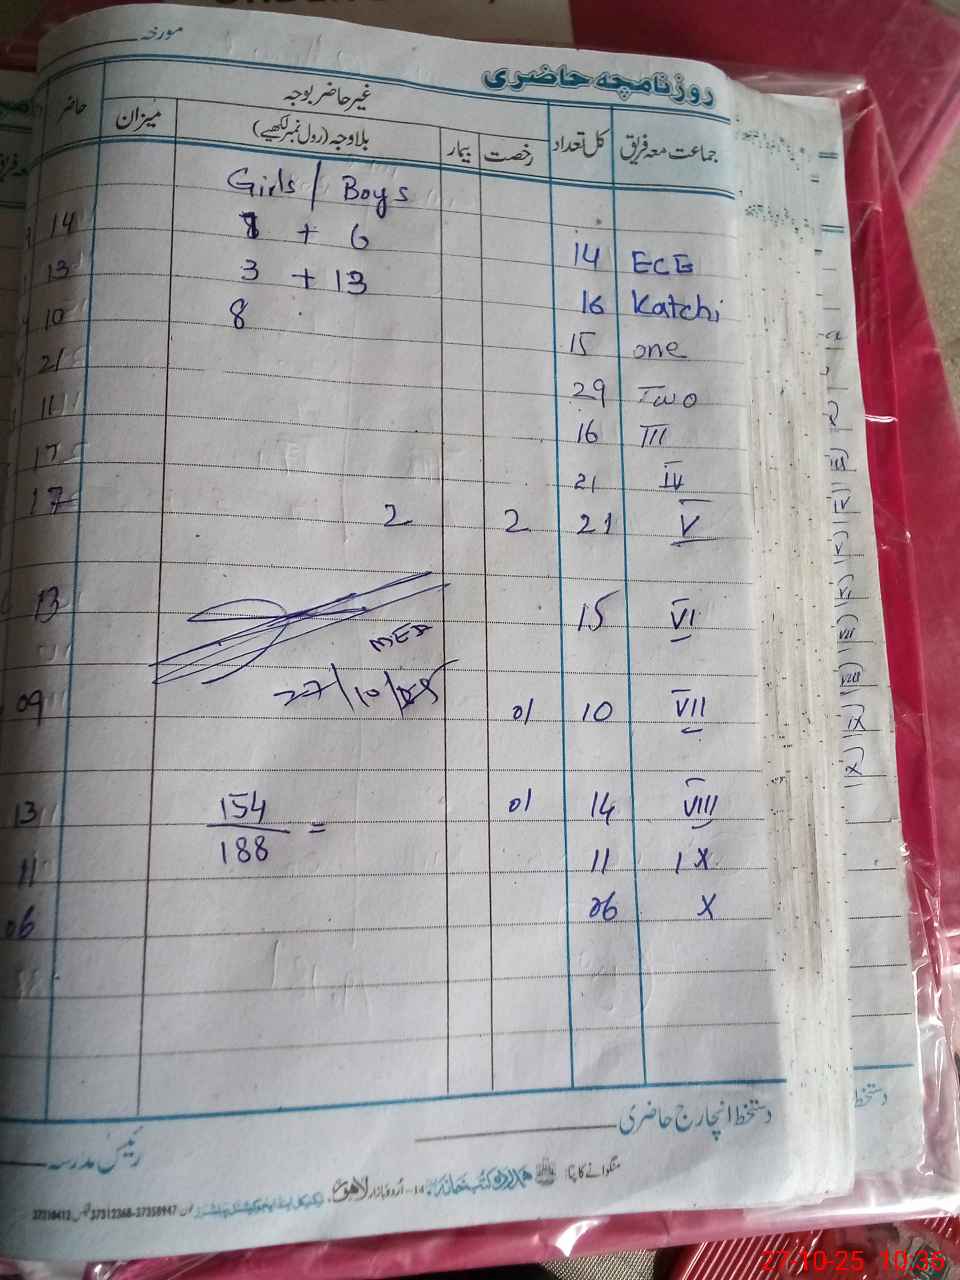 مورخہ
روزنامچہ حاضری
جماعت معہ فریق کل تعداد غیر حاضر بوجہ میزان حاضر
رخصت بیمار بلاوجہ (رول نمبر لکھیے)
Girls / Boys
ECE 14 8 + 6 14
Katchi 16 3 + 13 13
one 15 8 10
Two 29 21
III 16 11
IV 21 17
V 21 2 2 17
VI 15 13
MEA
27/10/25
VII 10 01 09
VIII 14 01 13
154
188 =
IX 11 11
X 06 06
دستخط انچارج حاضری
رئیس مدرسہ
منگوانے کا پتا: ہمدرد کتب خانہ اُردو بازار لاہور
37312368-37358947
27-10-25 10:35